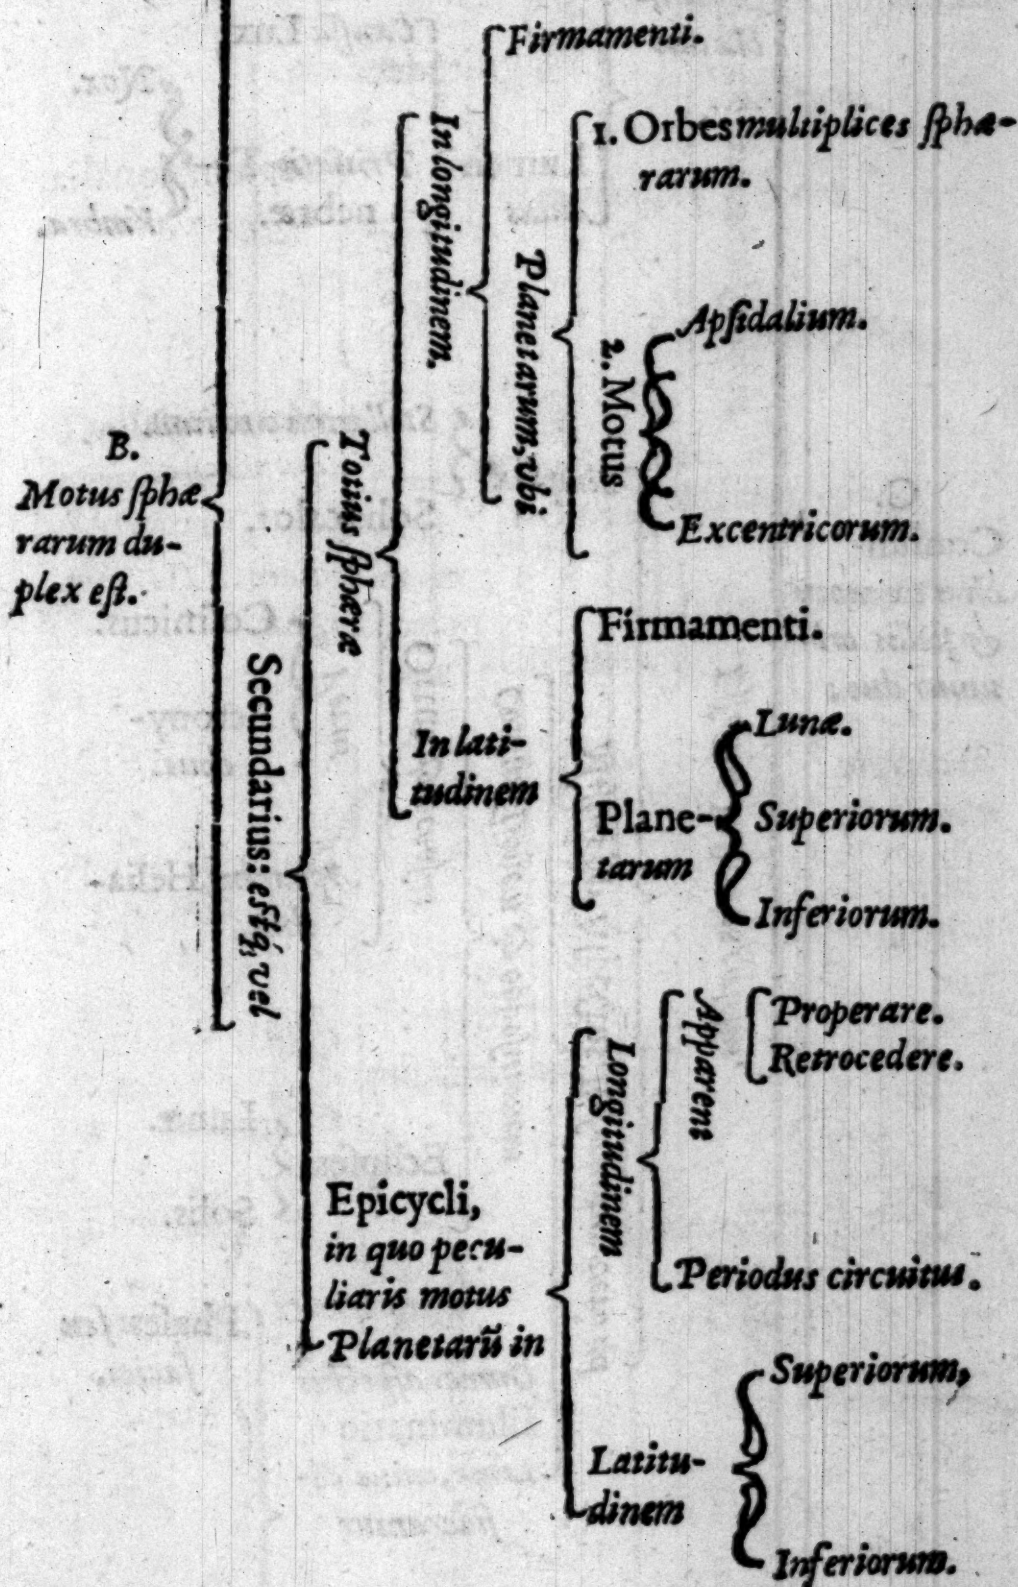 B.
Motus sphæ
rarum du-
plex est.
Secundarius: estq́, vel
Totius sphæræ
In longitudinem.
Firmamenti.
Planetarum, vbi
1. Orbes multiplices sphæ-
rarum.
2. Motus
Apsidalium.
Excentricorum.
In lati-
tudinem
Firmamenti.
Plane-
tarum
Lunæ.
Superiorum.
Inferiorum.
Epicycli,
in quo pecu-
liaris motus
Planetarũ in
Longitudinem
Apparent
Properare.
Retrocedere.
Periodus circuitus.
Latitu-
dinem
Superiorum,
Inferiorum.